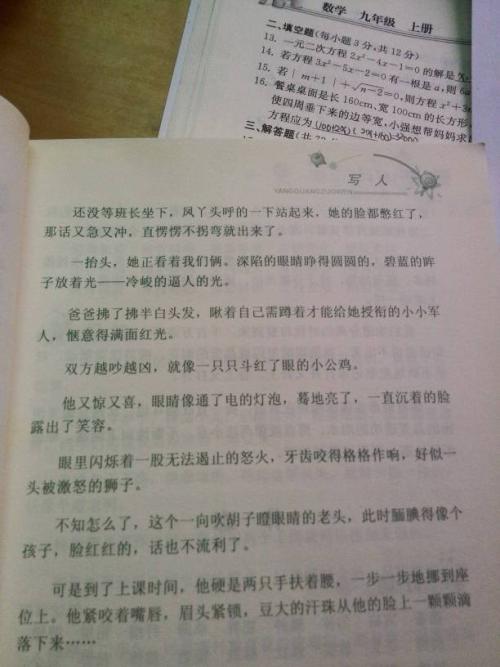 数学 九年级 上册
二、填空题(每小题3分,共12分)
13. 一元二次方程2x²-4x-1=0的解是
14. 若方程3x²-5x-2=0有一根是a,则6a
15. 若|m+1|+√n-2=0,则方程x²+3
16. 餐桌桌面是长160cm、宽100cm的长方形,
使四周垂下来的边等宽,小强想帮妈妈求
方程应为
三、解答题(共
写人
还没等班长坐下,凤丫头呼的一下站起来,她的脸都憋红了,
那话又急又冲,直愣愣不拐弯就出来了。
一抬头,她正看着我们俩。深陷的眼睛睁得圆圆的,碧蓝的眸
子放着光——冷峻的逼人的光。
爸爸拂了拂半白头发,瞅着自己需蹲着才能给她授衔的小小军
人,惬意得满面红光。
双方越吵越凶,就像一只只斗红了眼的小公鸡。
他又惊又喜,眼睛像通了电的灯泡,蓦地亮了,一直沉着的脸
露出了笑容。
眼里闪烁着一股无法遏止的怒火,牙齿咬得格格作响,好似一
头被激怒的狮子。
不知怎么了,这个一向吹胡子瞪眼睛的老头,此时腼腆得像个
孩子,脸红红的,话也不流利了。
可是到了上课时间,他硬是两只手扶着腰,一步一步地挪到座
位上。他紧咬着嘴唇,眉头紧锁,豆大的汗珠从他的脸上一颗颗滴
落下来……